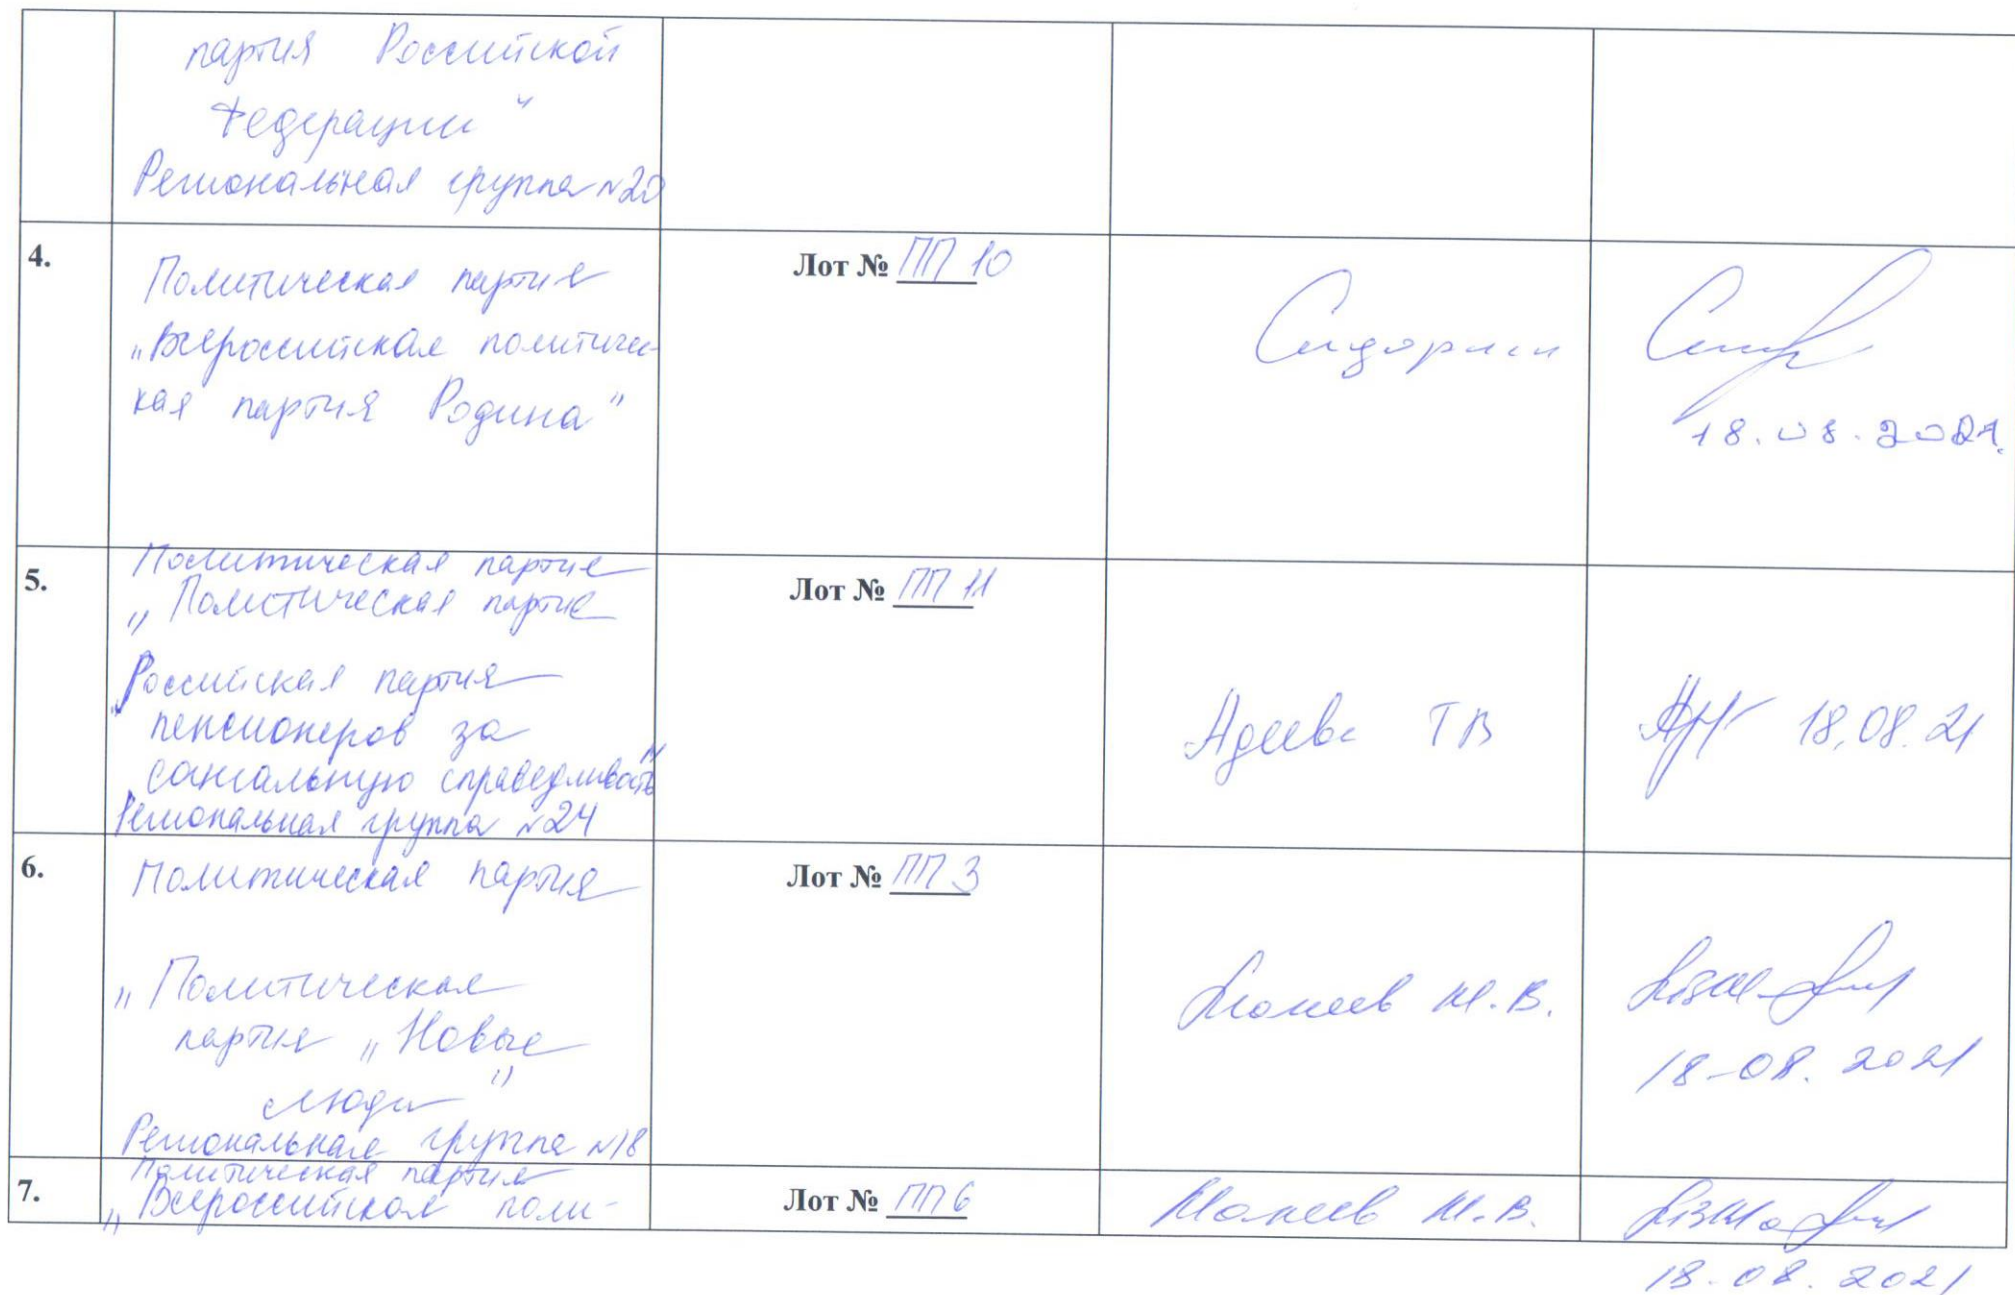 партия Российской
Федерации"
Региональная группа №20
4.
Политическая партия
„Всероссийская политичес-
кая партия Родина"
Лот № ПП 10
Сидорин
18.08.2021.
5.
Политическая партия
„Политическая партия
Российская партия
пенсионеров за
социальную справедливость"
Региональная группа №24
Лот № ПП 11
Адеева ТВ
18.08.21
6.
Политическая партия
„Политическая
партия „Новые
люди"
Региональная группа №18
Лот № ПП 3
М.В.
18-08.2021
7.
Политическая партия
„Всероссийская поли-
Лот № ПП 6
М.В.
18.08.2021